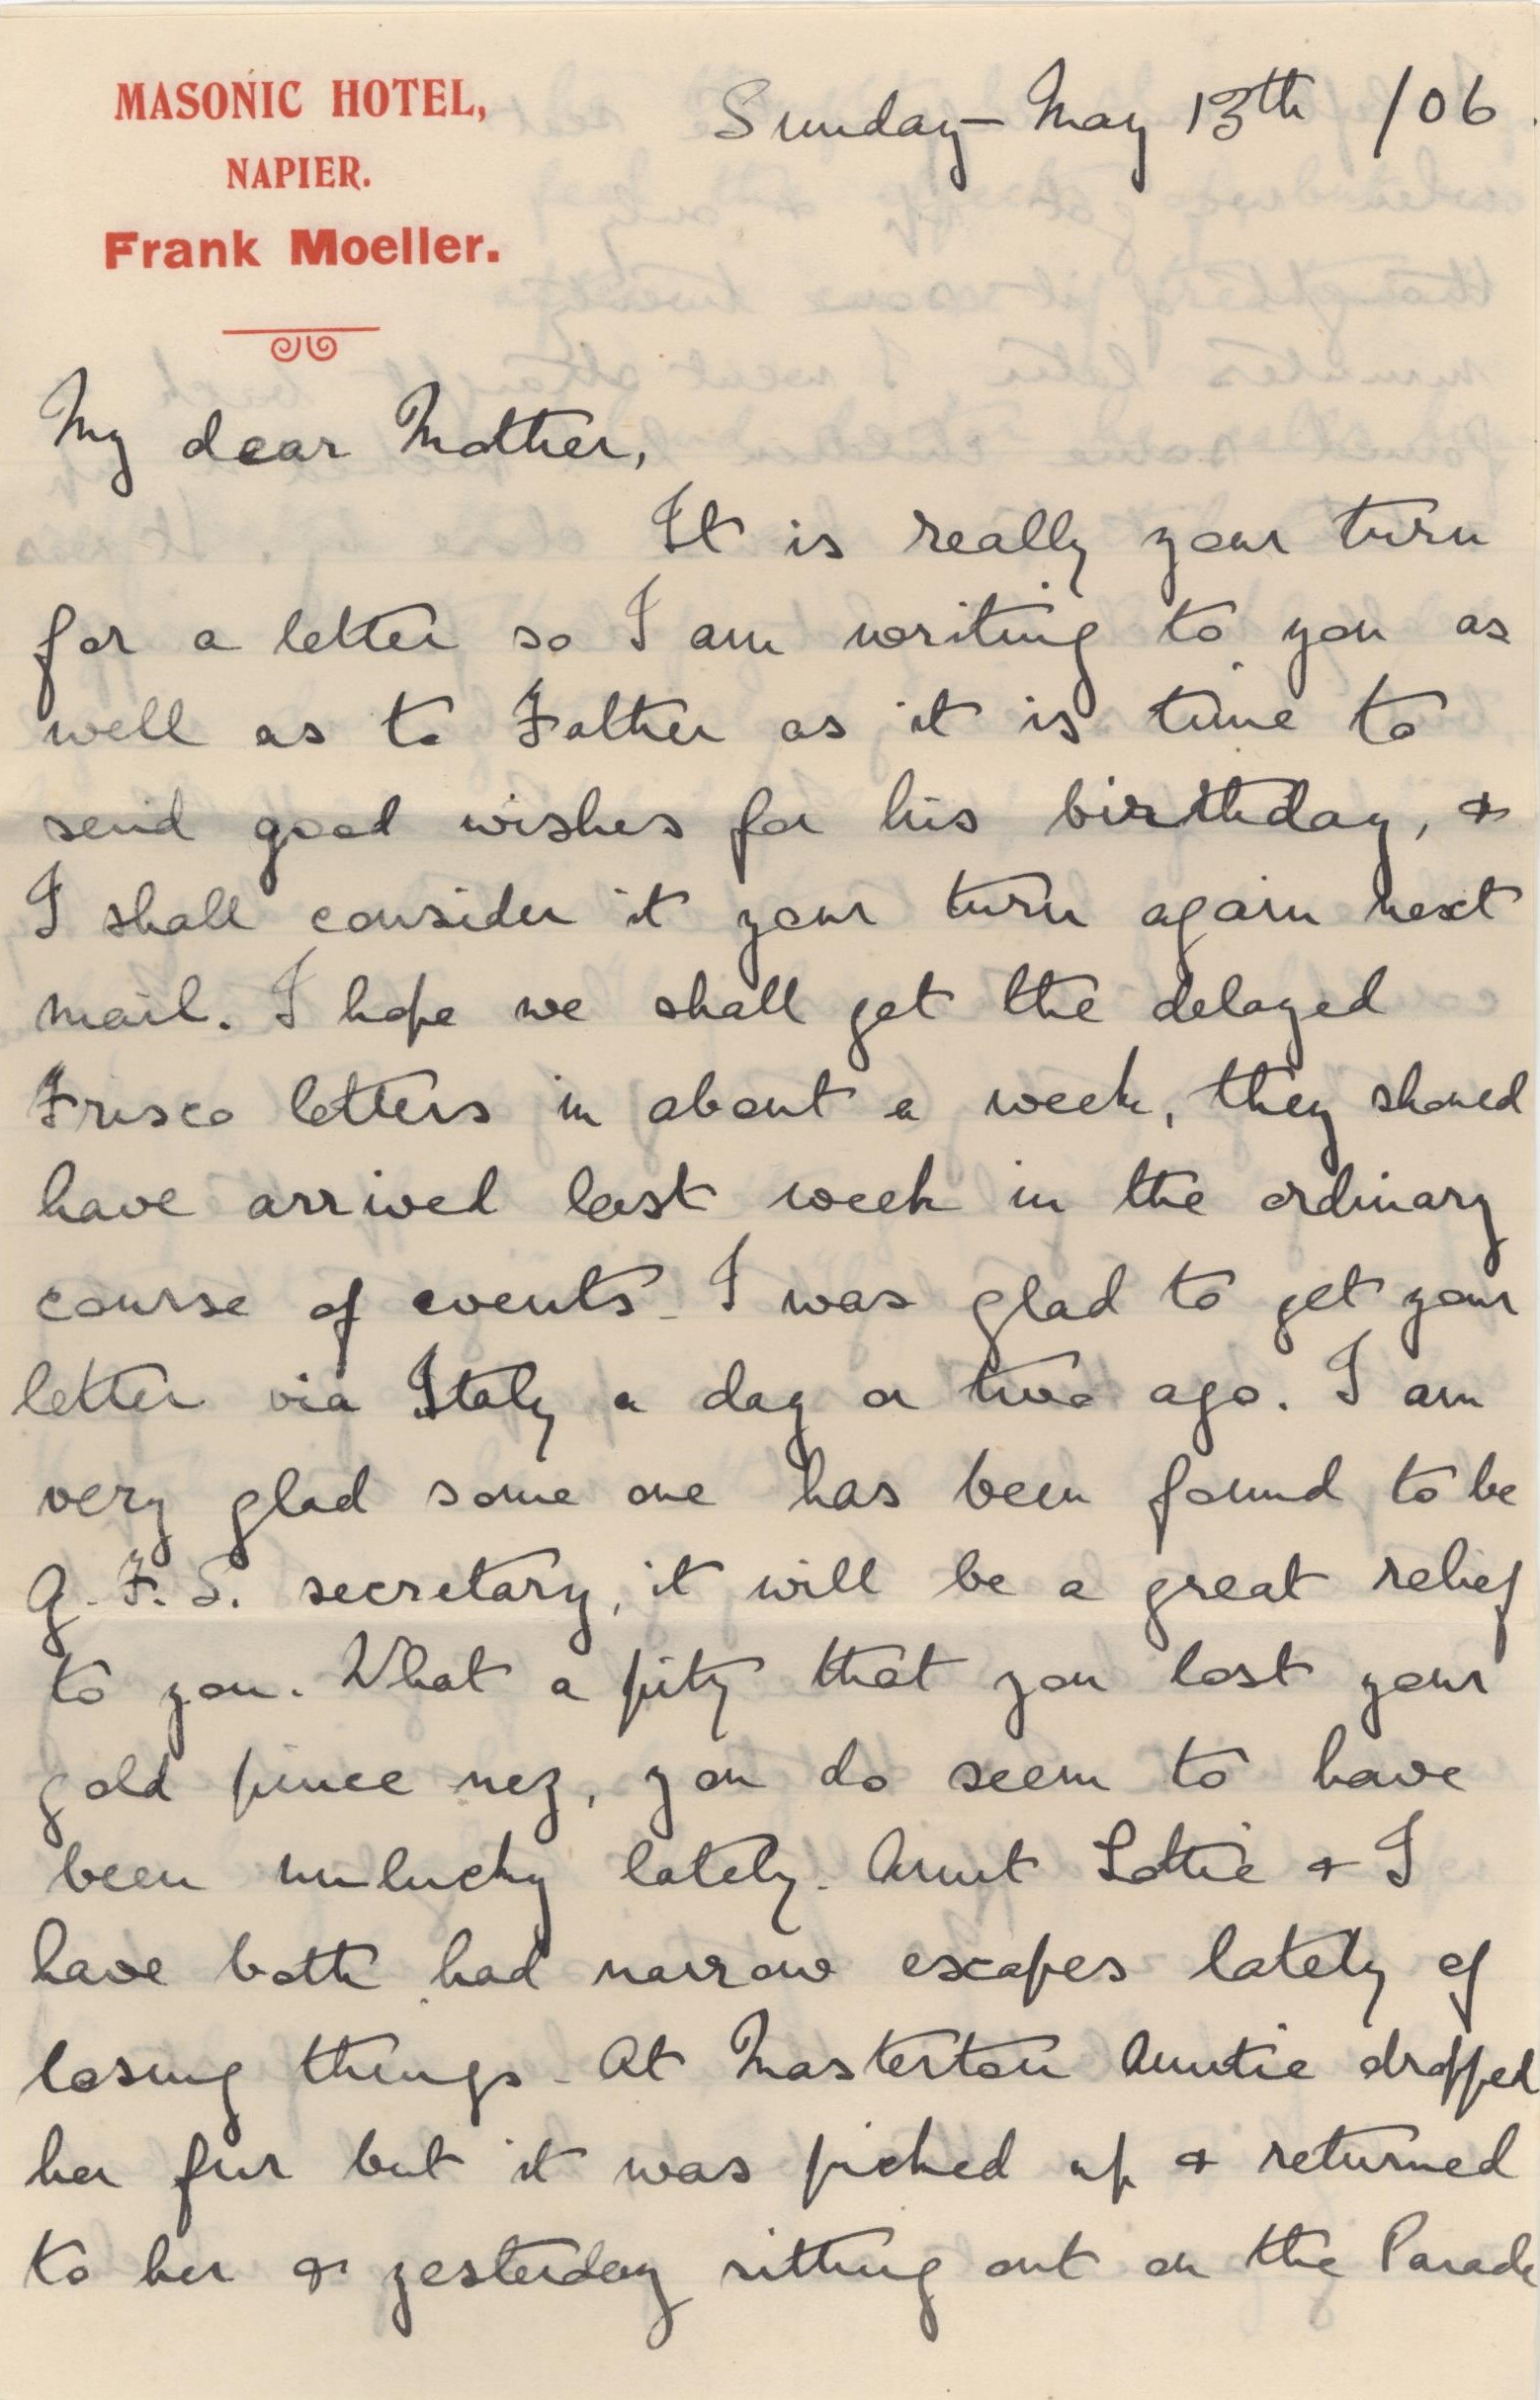 MASONIC HOTEL,
NAPIER.
Frank Moeller.
Sunday – May 13th /06.
My dear Mother,
It is really your turn
for a letter so I am writing to you as
well as to Father as it is time to
send good wishes for his birthday, &
I shall consider it your turn again next
mail. I hope we shall get the delayed
Frisco letters in about a week, they should
have arrived last week in the ordinary
course of events. I was glad to get your
letter via Italy a day or two ago. I am
very glad some one has been found to be
G.F.S. secretary, it will be a great relief
to you. What a pity that you lost your
gold pince nez, you do seem to have
been unlucky lately. Aunt Lottie & I
have both had narrow escapes lately of
losing things. At Masterton Auntie dropped
her fur but it was picked up & returned
to her & yesterday sitting out on the Parade